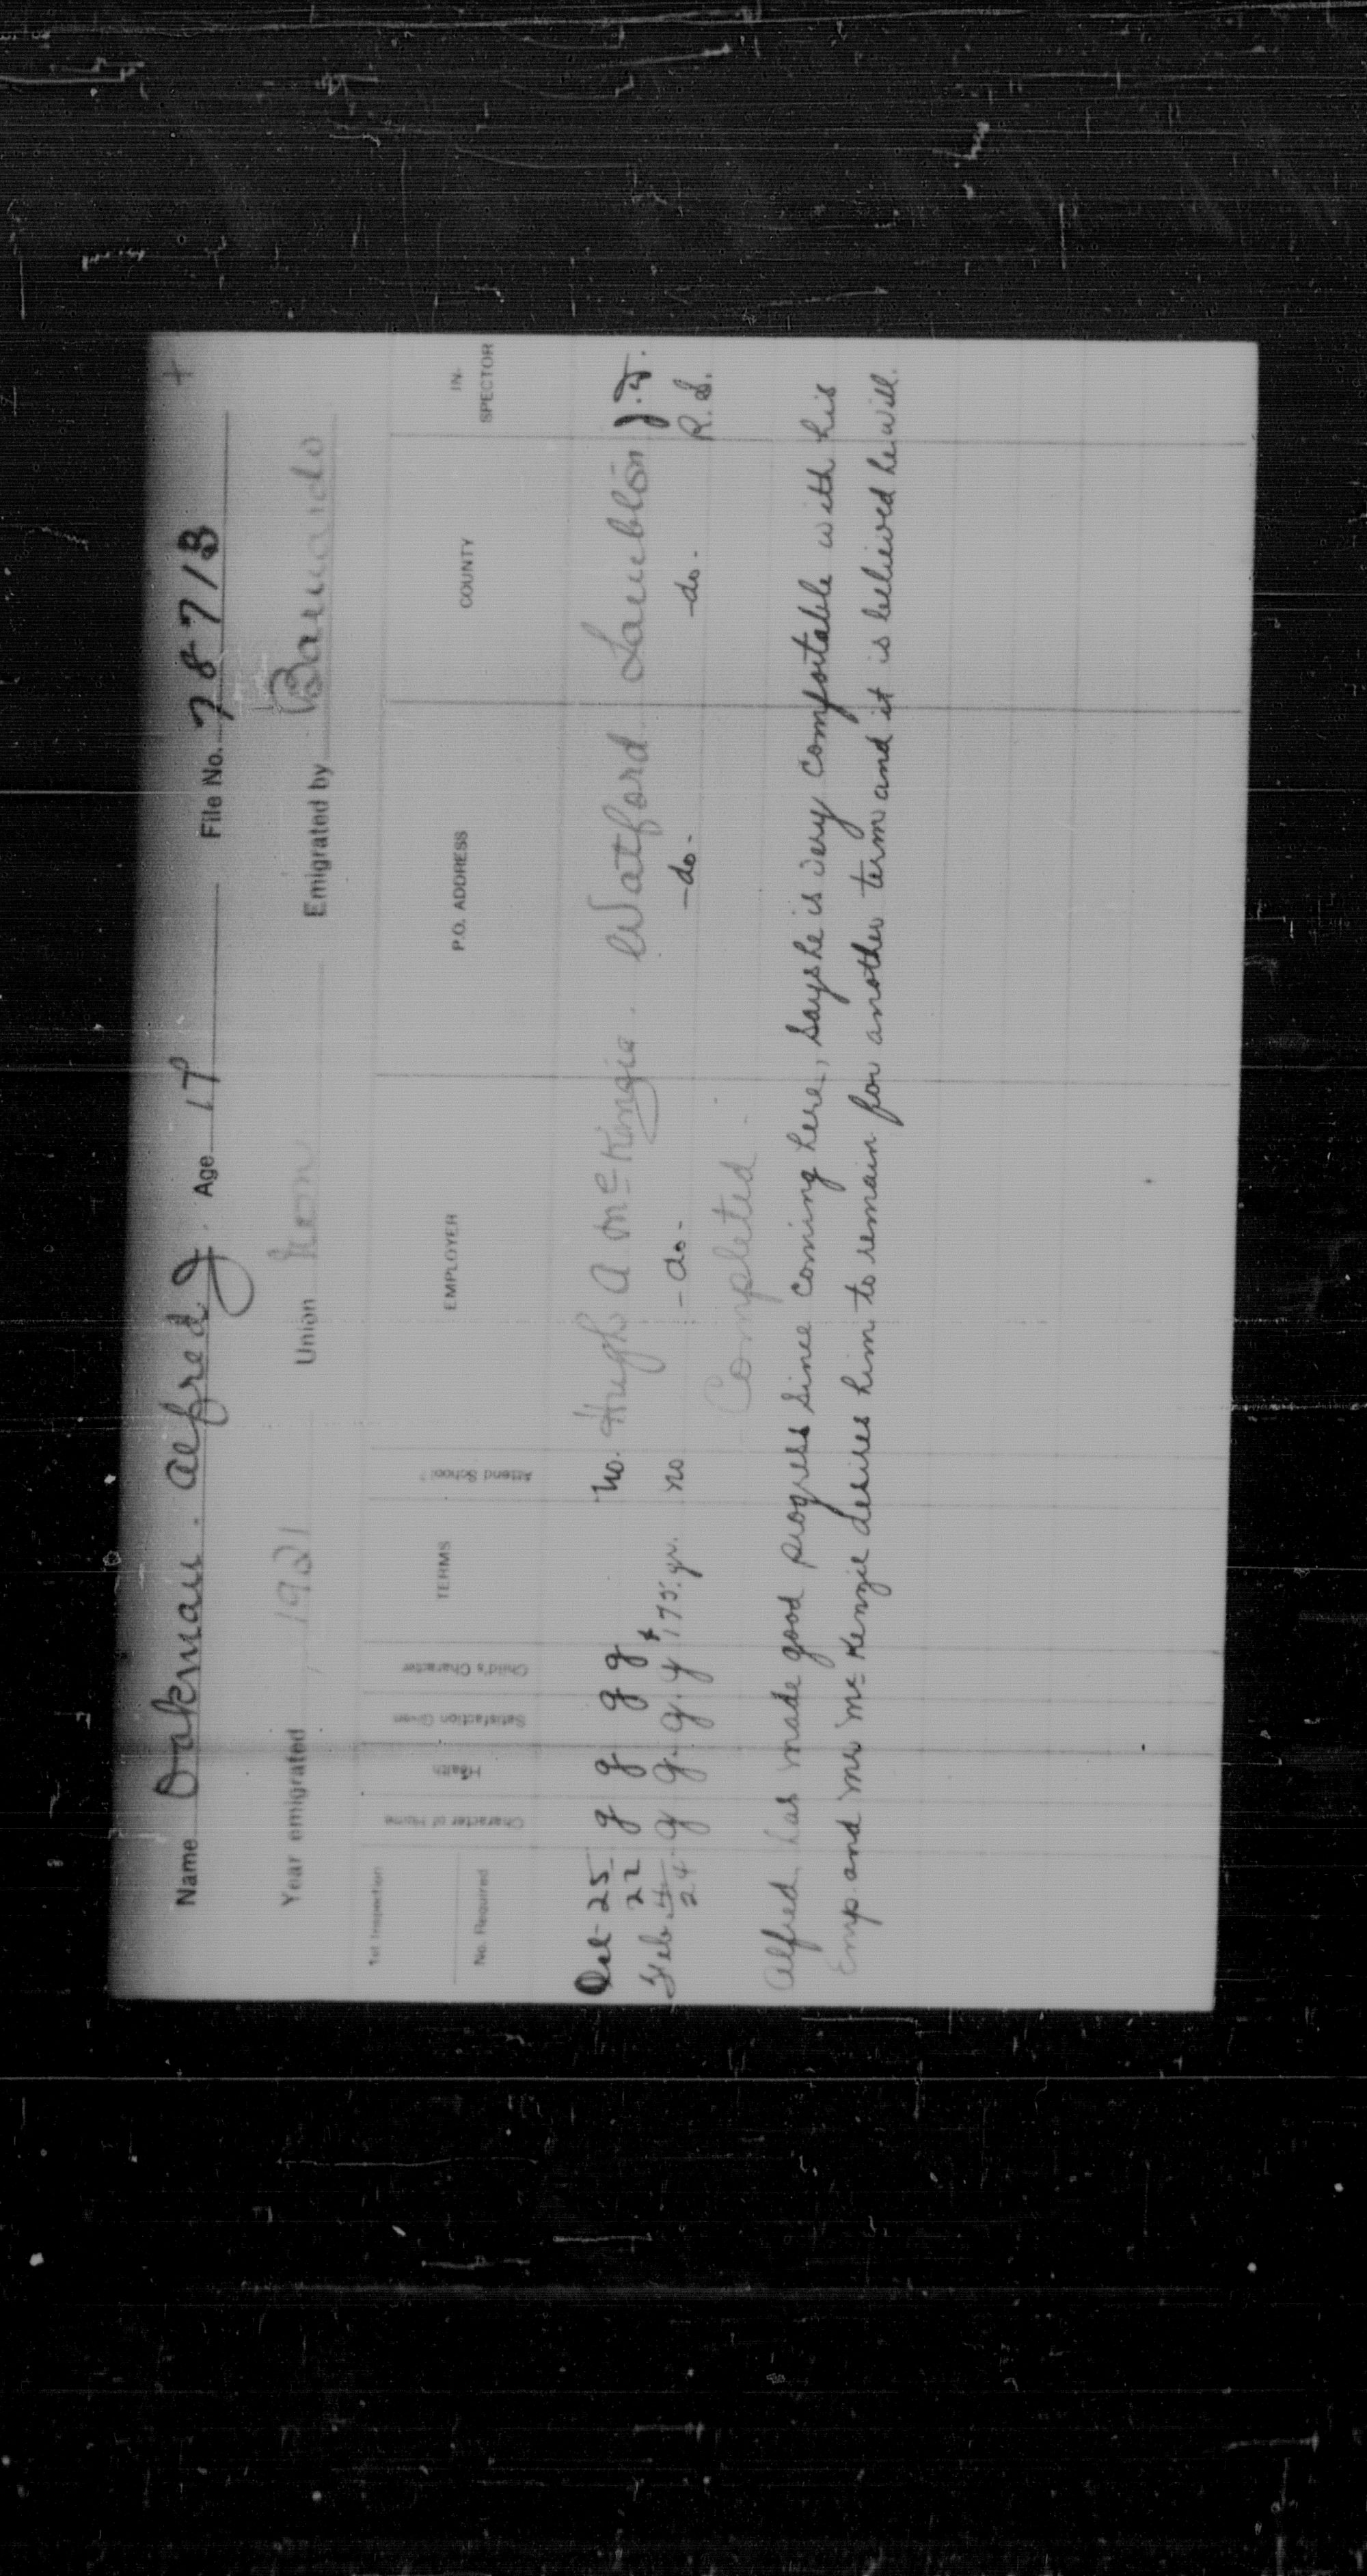 Name Oakman. Alfred J. Age 17 File No. 7871B +
Year emigrated 1921 Union non Emigrated by Barnardo
1st Inspection
No. Required
Character of Home
Health
Satisfaction Given
Child's Character
TERMS
Attend School?
EMPLOYER
P.O. ADDRESS
COUNTY
IN-
SPECTOR
Oct-25 22 g g g g no. Hugh A McKenzie. Watford Lambton
Feb 4 24 g g. g. g $175. yr. no -do- -do- -do- R.S.
Completed.
Alfred has made good progress since coming here, says he is very comfortable with his
Emp. and Mr McKenzie desires him to remain for another term and it is believed he will.